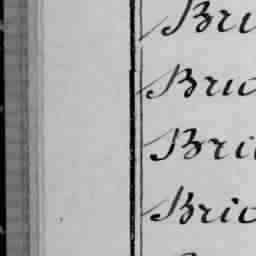 Bri
Bric
Bric
Bric